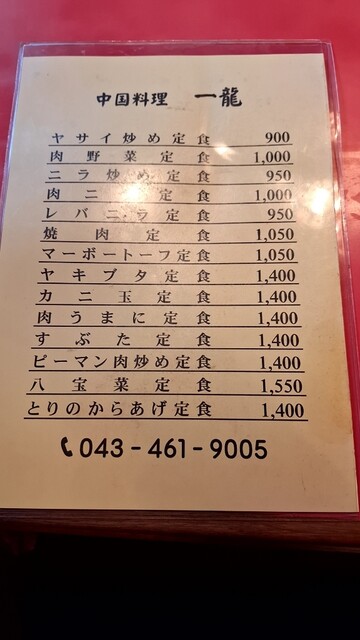 中国料理 一龍
ヤサイ炒め定食 900
肉野菜定食 1,000
ニラ炒め定食 950
肉ニ定食 1,000
レバニラ定食 950
焼肉定食 1,050
マーボートーフ定食 1,050
ヤキブタ定食 1,400
カニ玉定食 1,400
肉うまに定食 1,400
すぶた定食 1,400
ピーマン肉炒め定食 1,400
八宝菜定食 1,550
とりのからあげ定食 1,400
043-461-9005